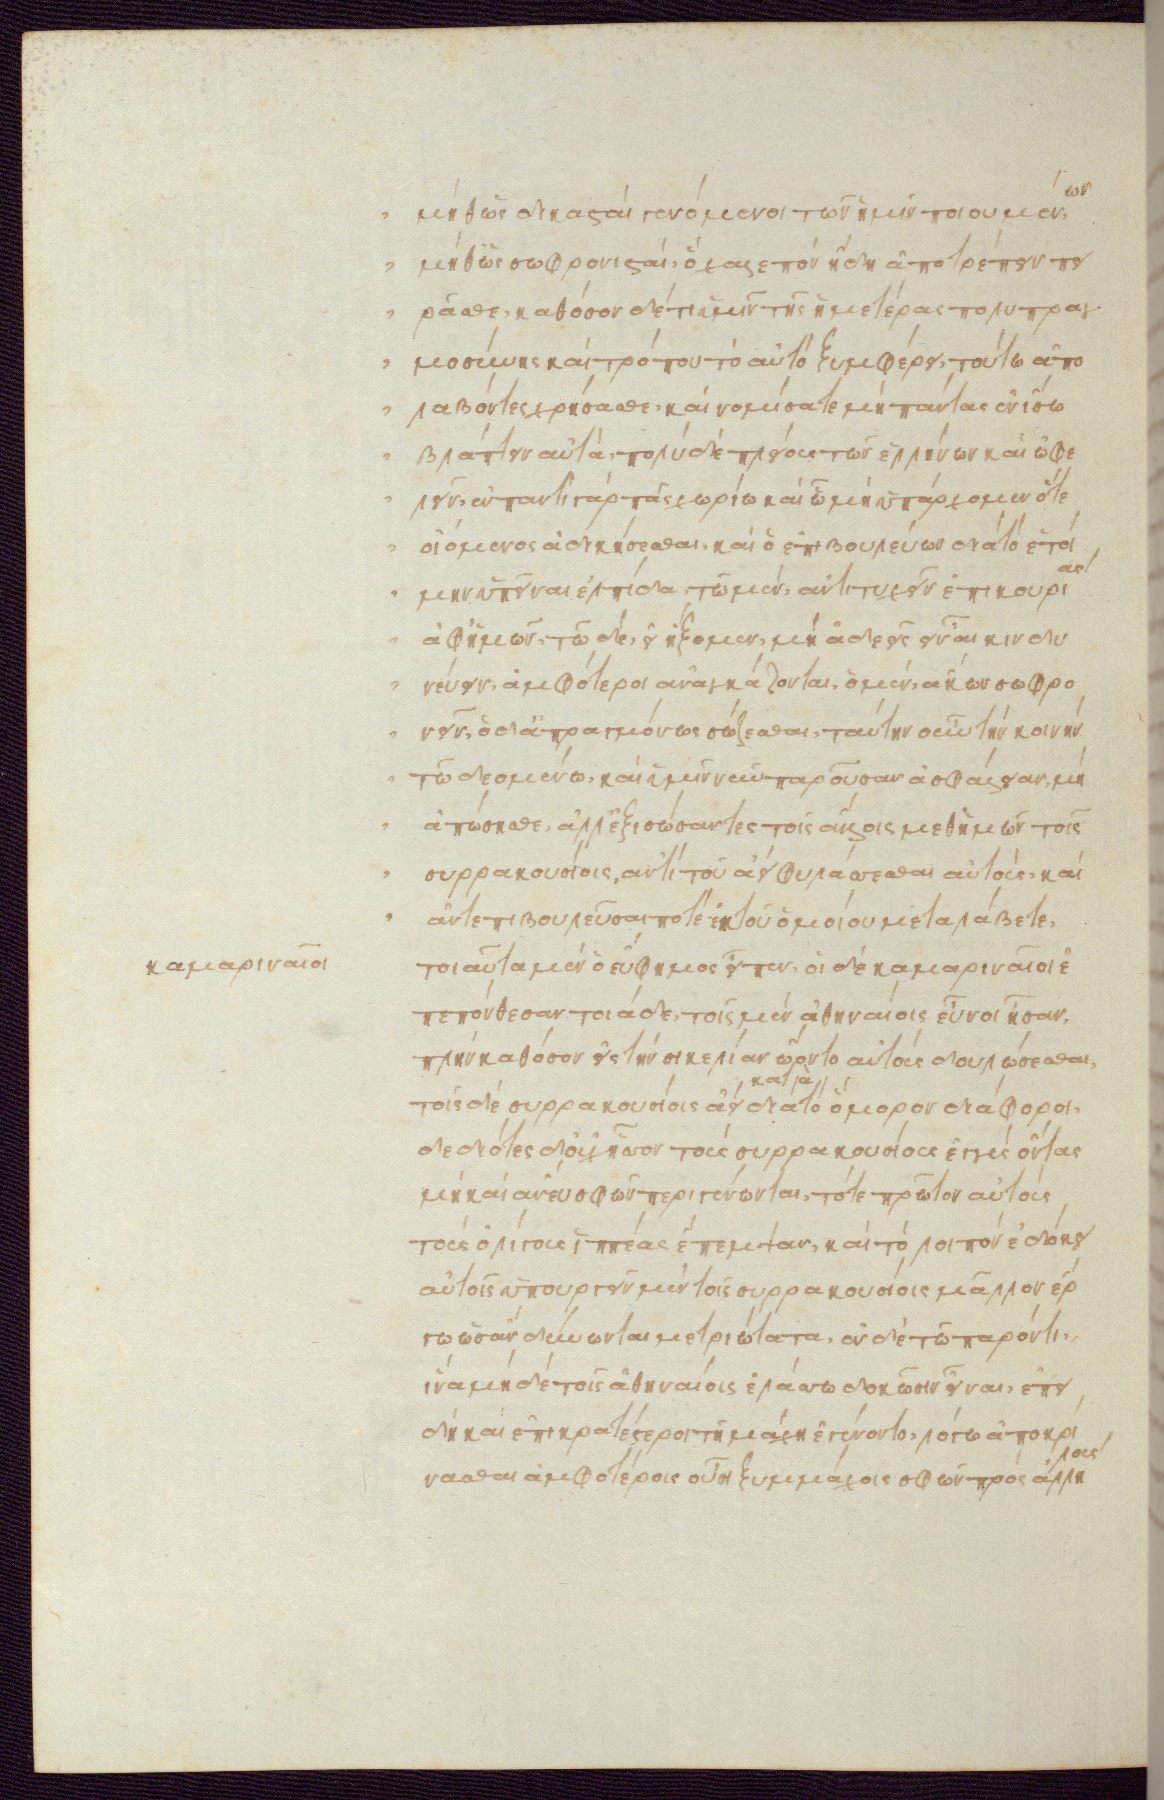 μήθ' ὡς δικασταὶ γενόμενοι τῶν ἡμῖν ποιουμένων,
μήθ' ὡς σωφρονισταὶ, ὃ χαλεπὸν ἤδη ἀποτρέπειν πει
ρᾶσθε, καθόσον δέ τι ὑμῖν τῆς ἡμετέρας πολυπραγ
μοσύνης καὶ τρόπου τὸ αὐτὸ ξυμφέρει, τούτω ἀπο
λαβόντες χρήσασθε, καὶ νομίσατε μὴ πάντας ἐν ἴσω
βλάπτειν αὐτά, πολὺ δὲ πλείους τῶν ἑλλήνων καὶ ὠφε
λεῖν, ἐν παντὶ γὰρ πᾶς χωρίω καὶ ὧ μὴ ὑπάρχομεν ὅτε
οἰόμενος ἀδικήσεσθαι, καὶ ὁ ἐπιβουλεύων διὰ τὸ ἑτοί
μην ὑπεῖναι ἐλπίδα, τῶ μὲν, ἀντιτυχεῖν ἐπικουρίας
ἀφ' ἡμῶν, τῶ δὲ, εἰ ἥξομεν, μὴ ἀδεεῖς εἶναι κινδυ
νεύειν, ἀμφότεροι ἀναγκάζονται, ὁ μὲν, ἄκων σωφρο
νεῖν, ὁ δ' ἀπραγμόνως σώζεσθαι, ταύτην οὖν τὴν κοινὴν
τῶ δεομένω, καὶ ὑμῖν νῦν παροῦσαν ἀσφάλειαν, μὴ
ἀπώσησθε, ἀλλ' ἐξισώσαντες τοῖς ἄλλοις μεθ' ἡμῶν τοῖς
συρρακουσίοις, ἀντὶ τοῦ ἀεὶ φυλάσσεσθαι αὐτοὺς, καὶ
ἀντεπιβουλεῦσαί ποτε ἐκ τοῦ ὁμοίου μεταλάβετε,
καμαριναῖοι
τοιαῦτα μὲν ὁ εὔφημος εἶπεν, οἱ δὲ καμαριναῖοι ἐ
πεπόνθεσαν τοιάδε, τοῖς μὲν ἀθηναίοις εὖνοι ἦσαν,
πλὴν καθόσον εἰς τὴν σικελίαν ὤοντο αὐτοὺς δουλώσεσθαι,
τοῖς δὲ συρρακουσίοις ἀεὶ κατὰ διὰ τὸ ὅμορον διάφοροι,
δεδιότες δ' οὐχ ἧσσον τοὺς συρρακουσίους ἐγγὺς ὄντας
μὴ καὶ ἄνευ σφῶν περιγένωνται, τότε πρῶτον αὐτοῖς
τοὺς ὀλίγους ἱππέας ἔπεμψαν, καὶ τὸ λοιπὸν ἐδόκει
αὐτοῖς ὑπουργεῖν μὲν τοῖς συρρακουσίοις μᾶλλον ἔρ
γω ὡς ἂν δύνωνται μετριώτατα, ἐν δὲ τῶ παρόντι,
ἵνα μηδὲ τοῖς ἀθηναίοις ἔλασσω δοκῶσιν εἶναι, ἐπει
δὴ καὶ ἐπικρατέστεροι τῆ μάχη ἐγένοντο, λόγω ἀποκρί
νασθαι ἀμφοτέροις οὖσι ξυμμάχοις σφῶν πρὸς ἀλλήλους